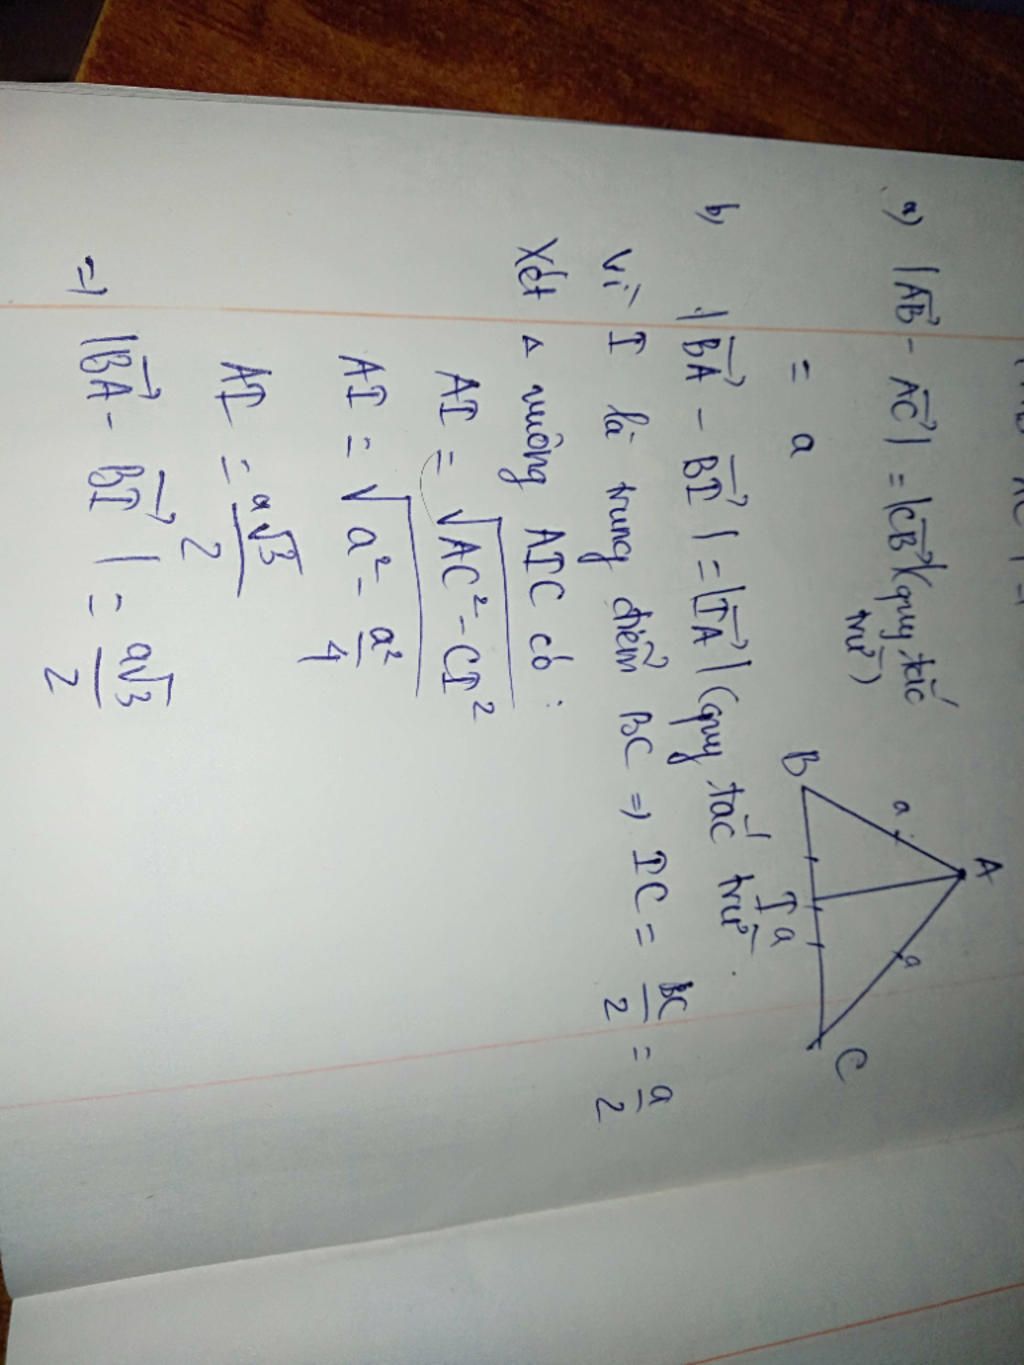 a) |AB⃗ - AC⃗| = |CB⃗| (quy tắc
trừ)
= a
A
a
a
B
I
a
C
b) |BA⃗ - BI⃗| = |IA⃗| (quy tắc trừ
Vì I là trung điểm BC ⇒ IC = BC/2 = a/2
Xét Δ vuông AIC có :
AI = √(AC² - CI²)
AI = √(a² - a²/4)
AI = a√3/2
=) |BA⃗ - BI⃗| = a√3/2